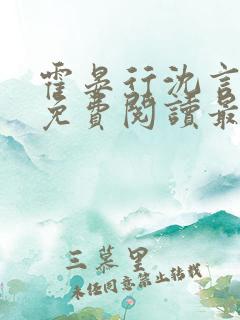 霍晏行沈言
免費閱讀最
三慕里
未经同意禁止转载